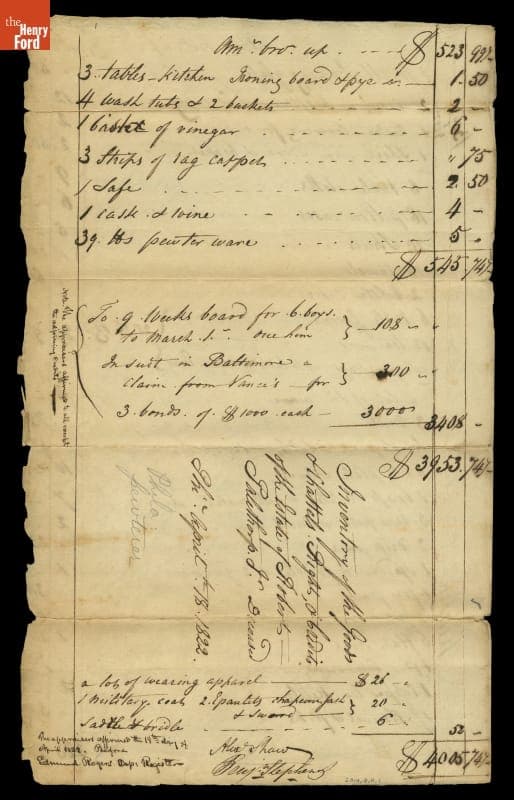 the
Henry
Ford
Amt bro. up. $ 523 99½
3. tables - kitchen Ironing board & pye 1.50
4 wash tubs & 2 buckets 2 -
1 of vinegar 6 -
3 Strips of rag carpet " 75
1 Safe 2.50
1 cask & wine 4 -
39 lbs pewter ware 5 -
$ 545.74½
To 9 Weeks board for 6 boys.
to March 1st. 108 "
In suit in Baltimore a
claim from Vance's for 300 "
3 bonds of $ 1000 each 3000
3408 -
$ 3953.74½
Inventory of the Goods
Chattels Rights & Credits
of the Estate of Robert
Palethorp Jr. Deceased
April 18. 1822.
Phila
a lot of wearing apparel $ 26 "
1 Military coat 2. Epauletts
& Sword 20 "
Saddle & bridle 6 52 -
The appraisers affirmed the 18th day of
April 1822. Before
Edmund Rogers Depy Register
Alexr Shaw
Benj. Stephens
$ 4005.74½